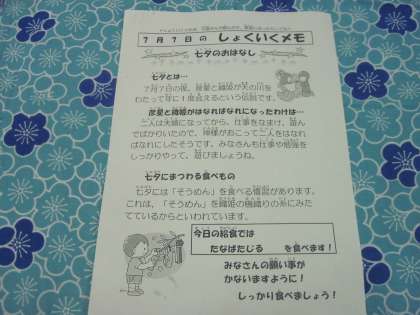 7月7日の しょくいくメモ
七夕のおはなし
七夕とは…
7月7日の夜、彦星と織姫が天の川を
わたって年に1度会えるという伝説です。
彦星と織姫がはなればなれになったわけは…
二人は夫婦になってから、仕事をなまけ、遊ん
でばかりいたので、神様がおこって二人をはなれ
ばなれにしたそうです。みなさんも仕事や勉強を
しっかりやって、遊びましょうね。
七夕にまつわる食べもの
七夕には「そうめん」を食べる習慣があります。
これは、「そうめん」を織姫の機織りの糸にみた
てているからといわれています。
今日の給食では
たなばたじる を食べます!
みなさんの願い事が
かないますように!
しっかり食べましょう!